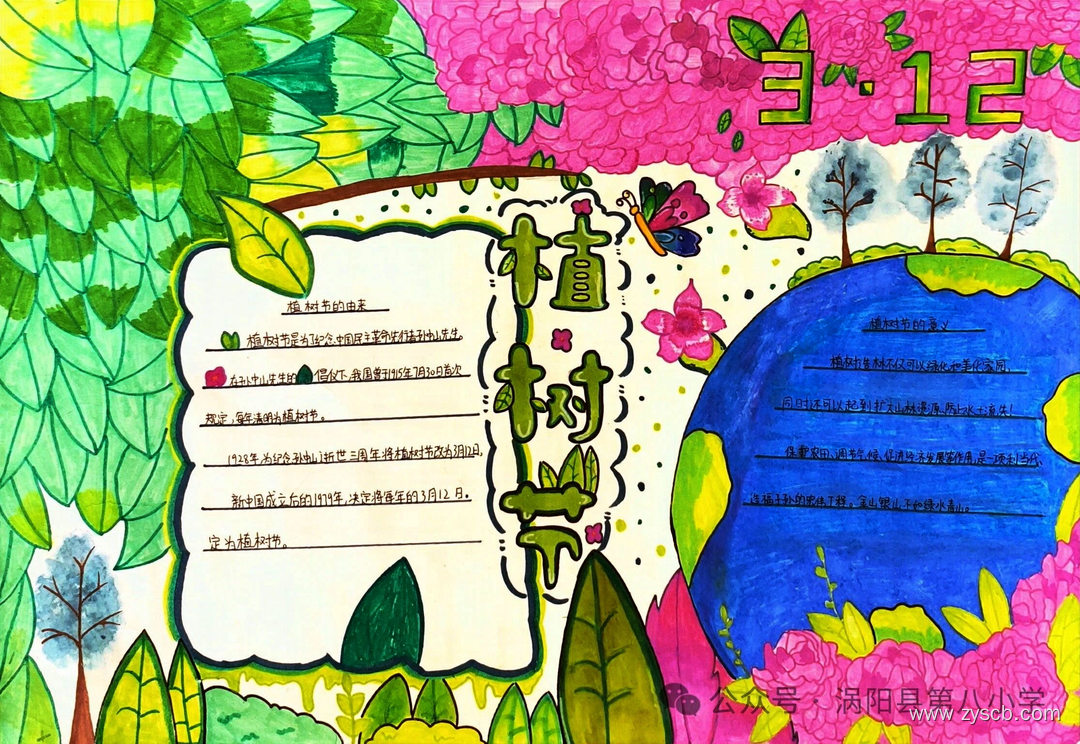 3·12
植树节
植树节的由来
植树节是为了纪念中国民主革命先行者孙中山先生。
在孙中山先生的倡仪下,我国曾于1915年7月30日首次
规定,每年清明为植树节。
1928年为纪念孙中山逝世三周年将植树节改为3月12日,
新中国成立后的1979年,决定将每年的3月12日。
定为植树节。
植树节的意义
植树造林不仅可以绿化和美化家园,
同时还可以起到扩大山林资源、防止水土流失!
保护农田、调节气候、促进经济发展等作用,是一项利当代、
造福子孙的宏伟工程。金山银山,不如绿水青山。
公众号·涡阳县第八小学
www.zyscb.com